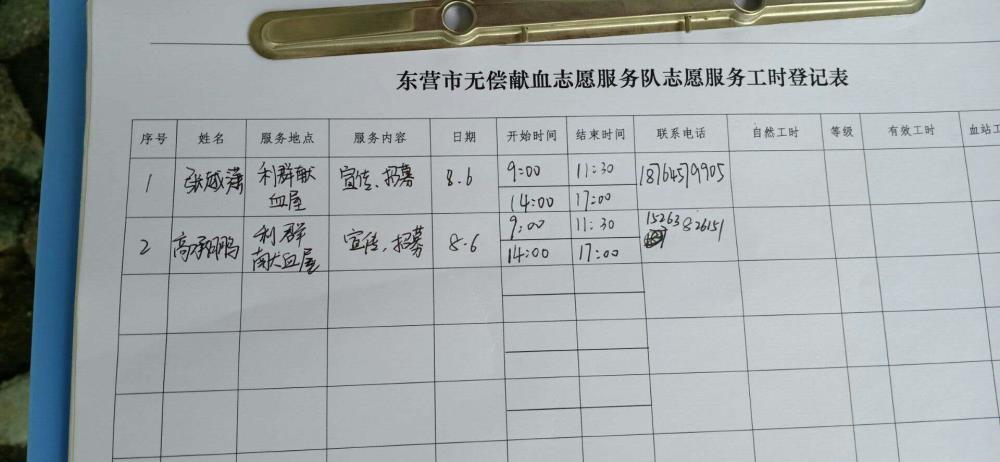 东营市无偿献血志愿服务队志愿服务工时登记表
序号 姓名 服务地点 服务内容 日期 开始时间 结束时间 联系电话 自然工时 等级 有效工时 血站工
1 张越潇 利群献血屋 宣传、招募 8.6 9:00 11:30 18764579905
14:00 17:00
2 高 鹏 利群献血屋 宣传、招募 8.6 9:00 11:30 15263826151
14:00 17:00